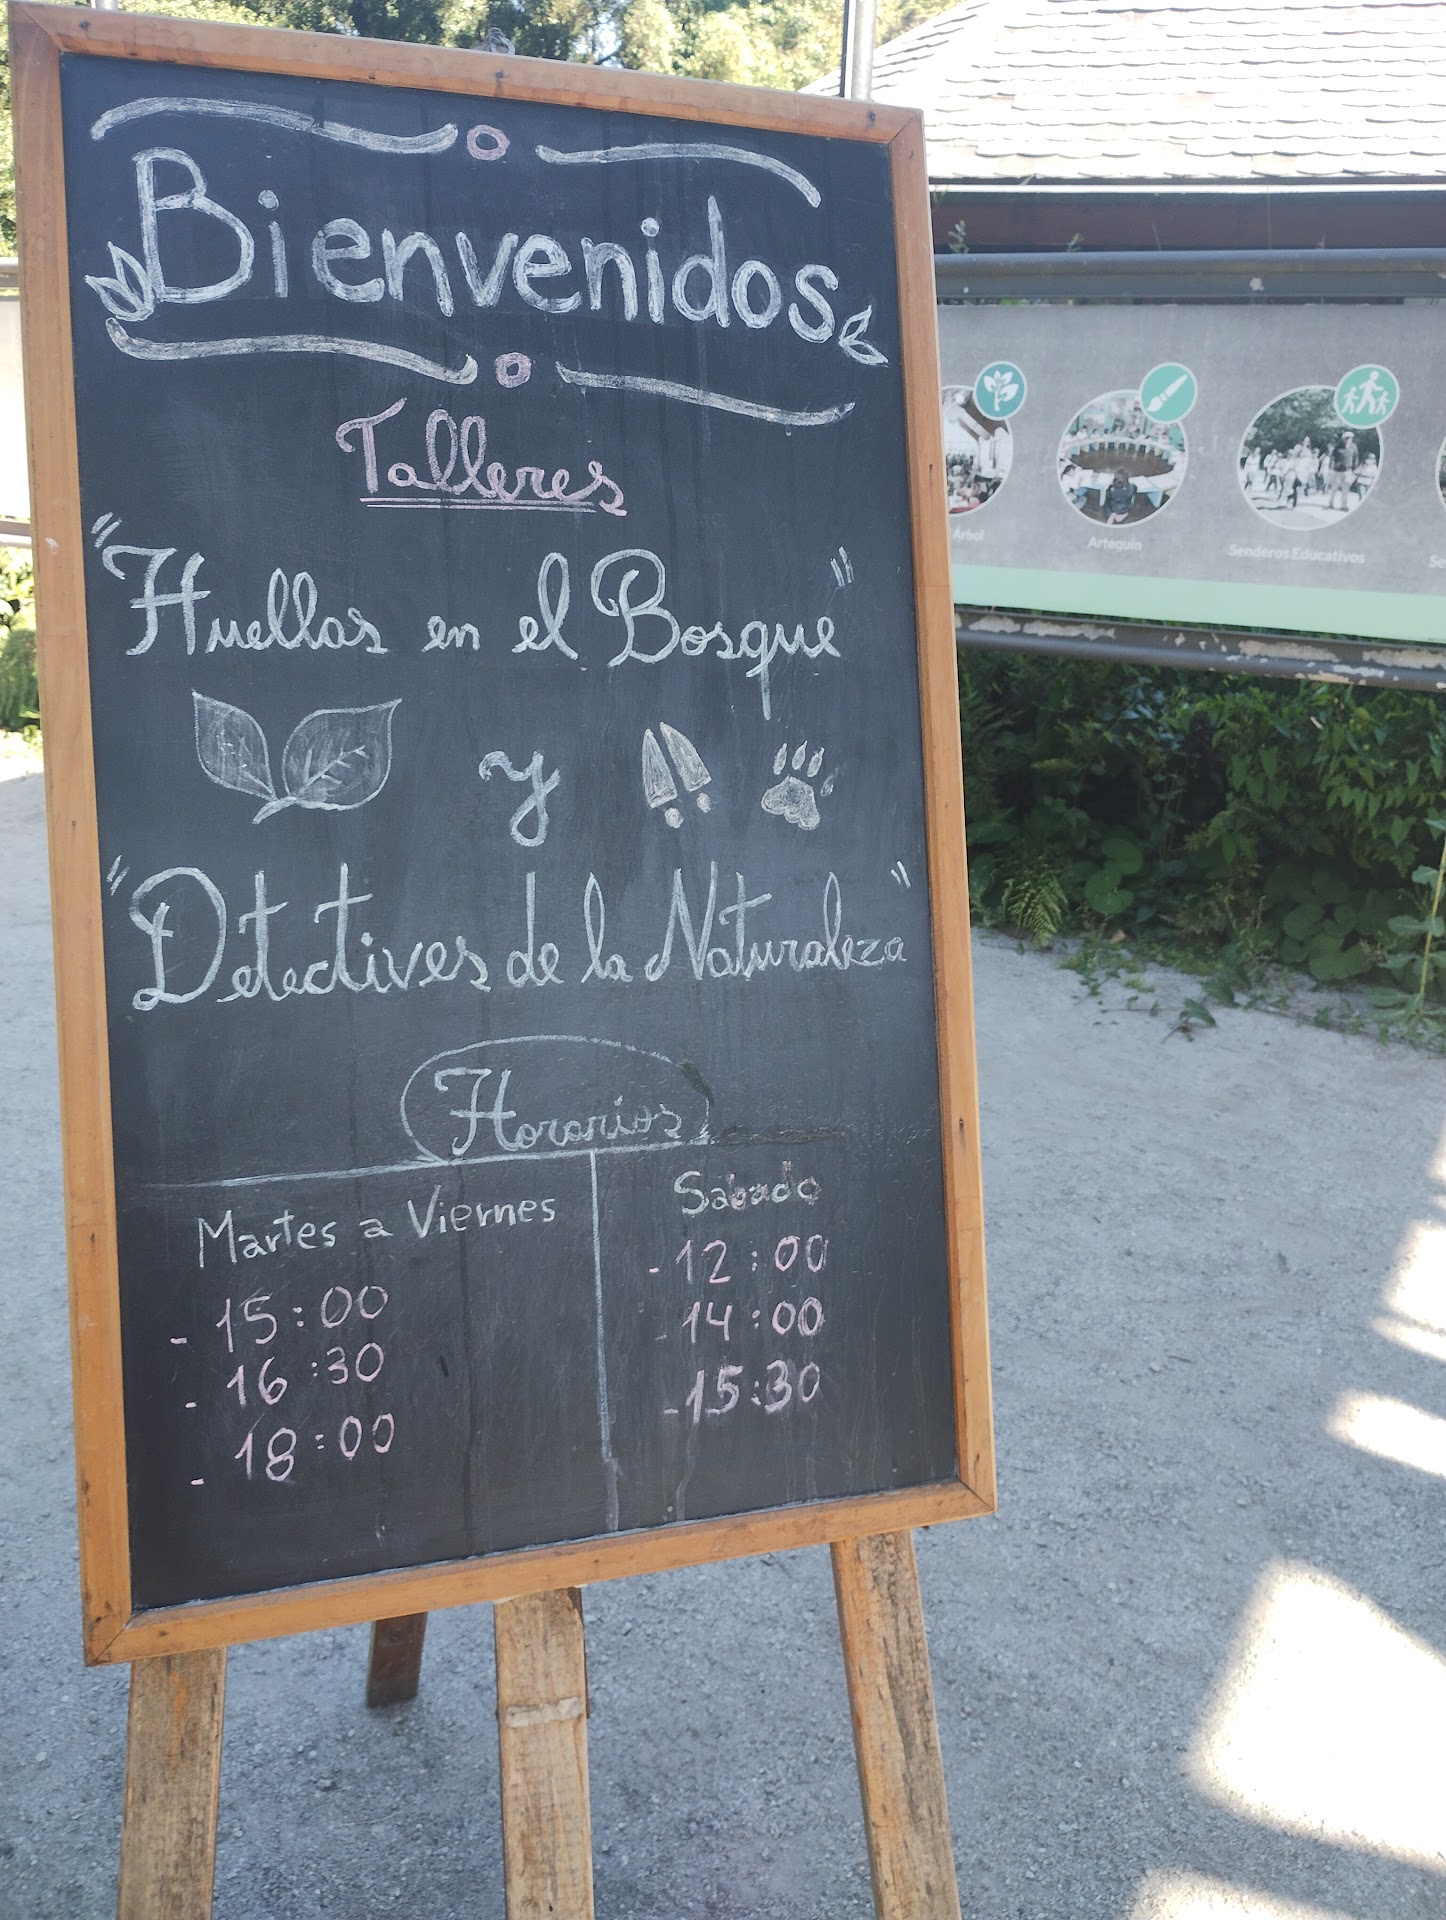 Bienvenidos
Talleres
"Huellas en el Bosque"
y
"Detectives de la Naturaleza"
Horarios
Martes a Viernes
- 15:00
- 16:30
- 18:00
Sabado
- 12:00
- 14:00
- 15:30
Árbol
Artequin
Senderos Educativos